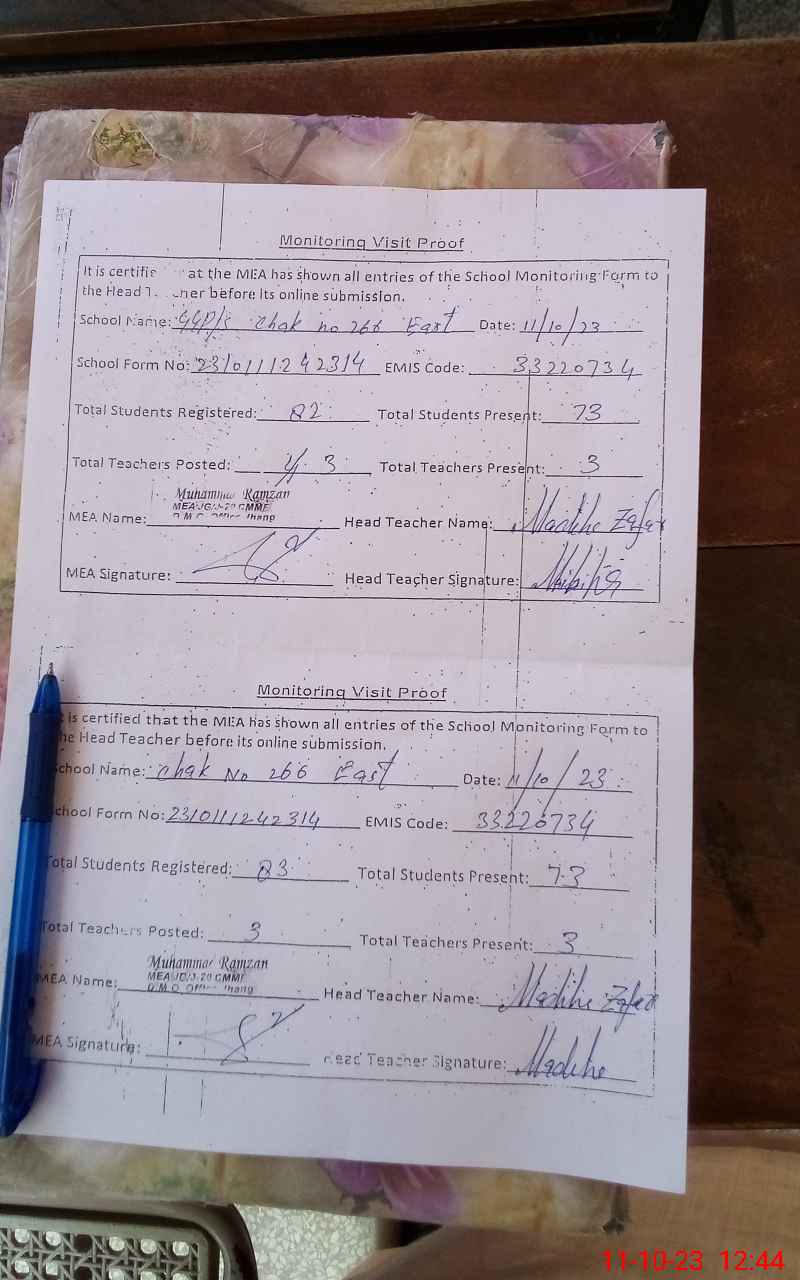 Monitoring Visit Proof
It is certifie at the MEA has shown all entries of the School Monitoring Form to
the Head T cher before its online submission.
School Name: GGP/S Chak no 266 East Date: 11/10/23
School Form No: 23101111242314 EMIS Code: 33220734
Total Students Registered: 82 Total Students Present: 73
Total Teachers Posted: 3 Total Teachers Present: 3
Muhammad Ramzan
MEA Name: Head Teacher Name: Madiha Zafar
MEA Signature: Head Teacher Signature:
Monitoring Visit Proof
It is certified that the MEA has shown all entries of the School Monitoring Form to
the Head Teacher before its online submission.
School Name: Chak No 266 East Date: 11/10/23
School Form No: 23101111242314 EMIS Code: 33220734
Total Students Registered: 83 Total Students Present: 73
Total Teachers Posted: 3 Total Teachers Present: 3
Muhammad Ramzan
MEA Name: Head Teacher Name: Madiha Zafar
MEA Signature: Head Teacher Signature: Madiha
11-10-23 12:44